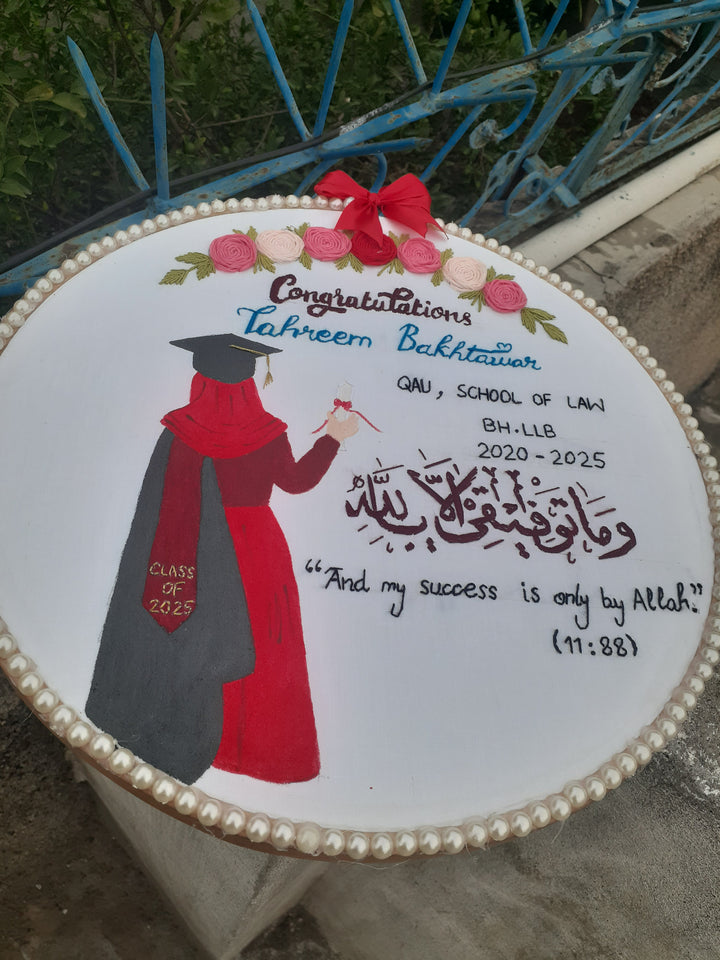 Congratulations
Tahreem Bakhtawar
QAU, SCHOOL OF LAW
BH.LLB
2020-2025
وَمَا تَوْفِيْقِيْ اِلَّا بِاللّٰهِ
"And my success is only by Allah."
(11:88)
CLASS
OF
2025